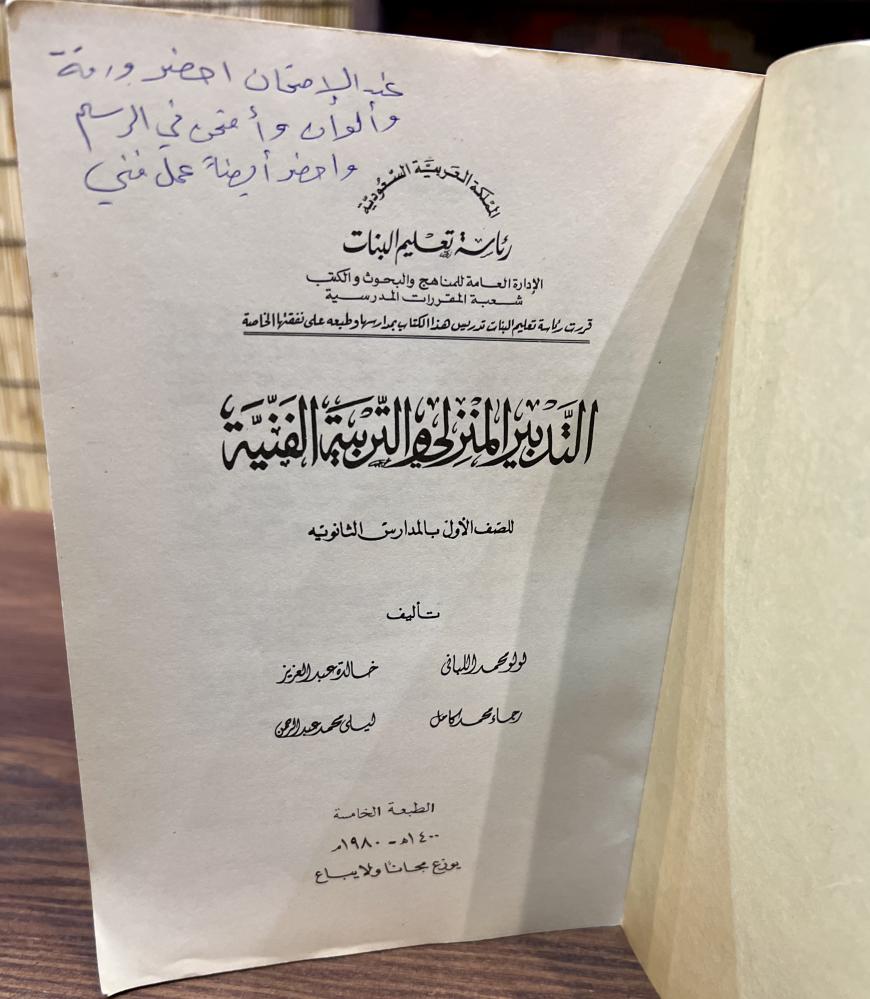 غد الإمتحان احضر ورقة
وألوان وأمتحن في الرسم
واحضر أيضاً عمل فني
المملكة العربيَّة السّعُوديَّة
رئاسة تعليم البنات
الإدارة العامة للمناهج والبحوث والكتب
شعبة المقررات المدرسية
قررت رئاسة تعليم البنات تدريس هذا الكتاب بمدارسها وطبعه على نفقتها الخاصة
التَّدبير المنزلي والتَّربيَة الفَنيَّة
للصف الأول بالمدارس الثانويه
تأليف
لولو محمد اللهانى خالدة عبد العزيز
رجاء محمد كامل ليلى محمد عبد الرحمن
الطبعة الخامسة
١٤٠٠هـ - ١٩٨٠م
يوزع مجانًا ولا يباع